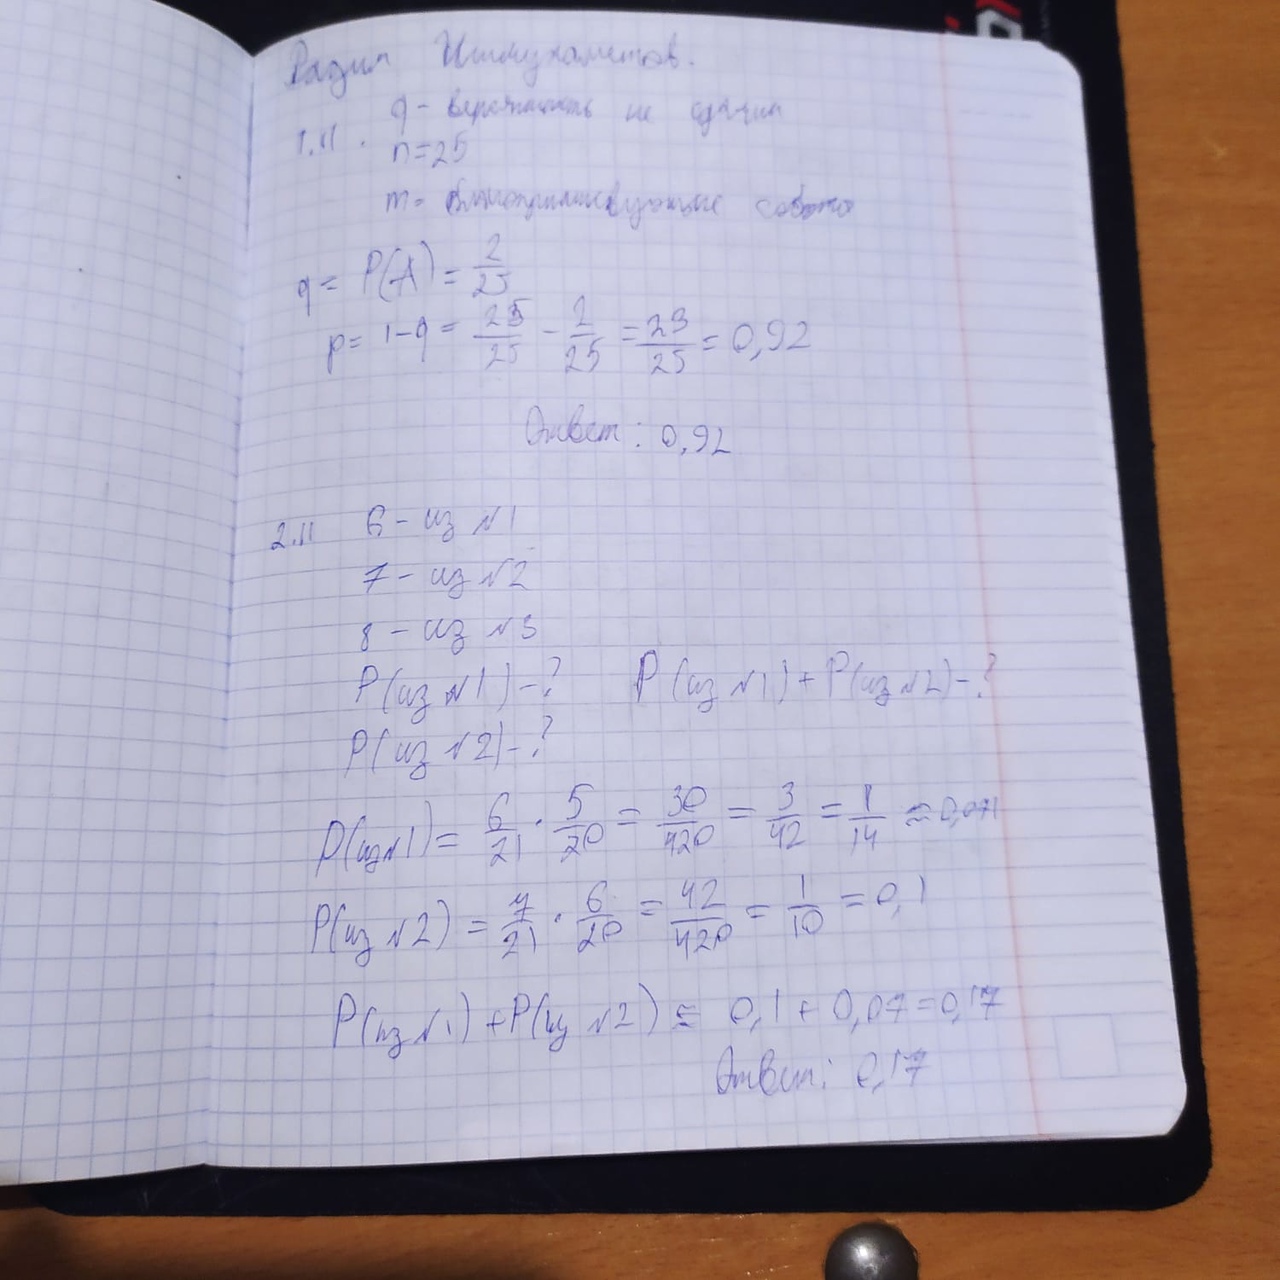 Радим Ишмухаметов.
1.11. q - вероятность не сдачи
n=25
m- благоприятствующие
q = P(A) = 2/25
p = 1-q = 25/25 - 2/25 = 23/25 = 0,92
Ответ: 0,92
2.11 6 - из №1
7 - из №2
8 - из №3
P(из №1) - ? P(из №1) + P(из №2) - ?
P(из №2) - ?
P(из №1) = 6/21 · 5/20 = 30/420 = 3/42 = 1/14 ≈ 0,071
P(из №2) = 7/21 · 6/20 = 42/420 = 1/10 = 0,1
P(из №1) + P(из №2) ≈ 0,1 + 0,07 = 0,17
Ответ: 0,17